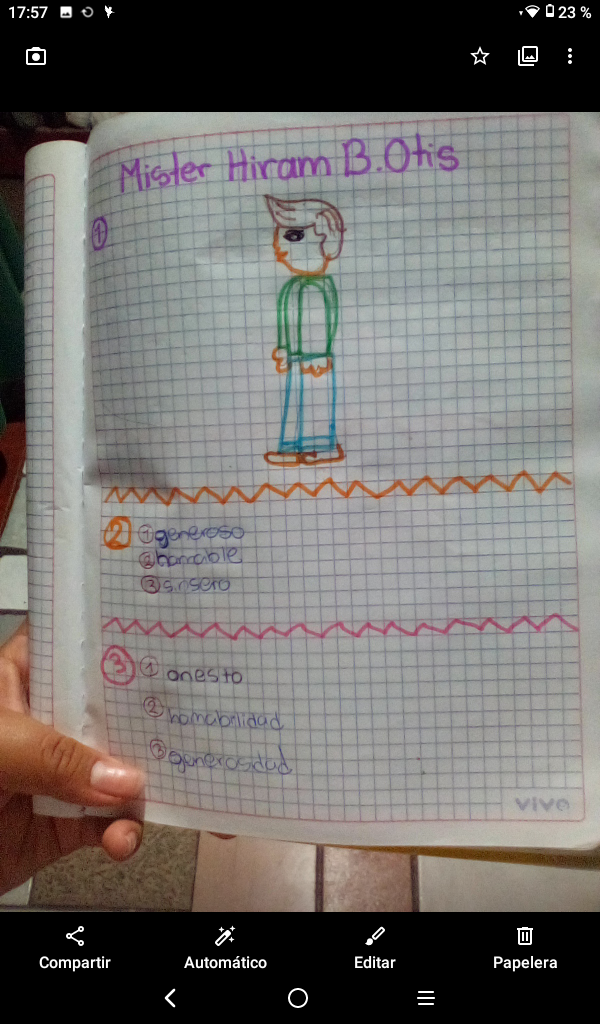 17:57
23 %
Mister Hiram B.Otis
1
2 1 generoso
2 homable
3 sinsero
3 1 onesto
2 homabilidad
3 generosidad
vivo
Compartir
Automático
Editar
Papelera